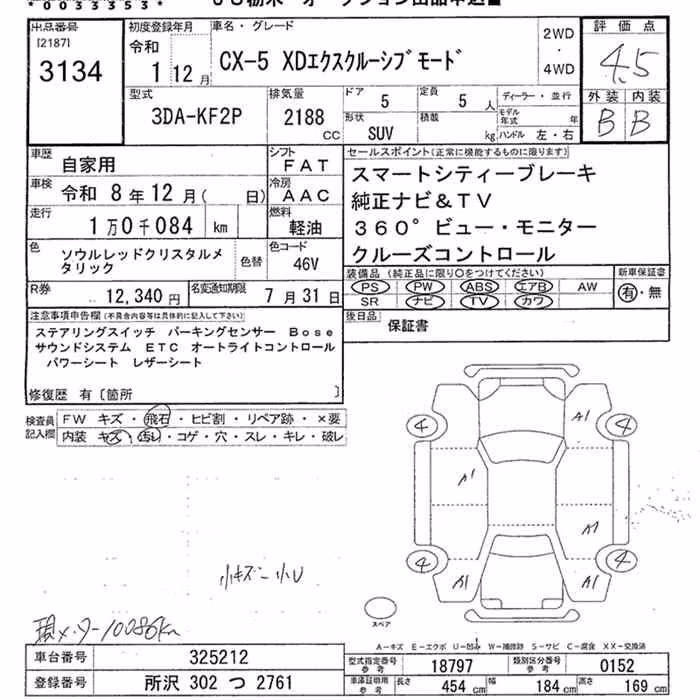 *0033353*
出品番号
[2187]
3134
初度登録年月
令和
1 12月
車名・グレード
CX-5 XDエクスクルーシブモード
2WD
・
4WD
評価点
4.5
外装 内装
B B
型式
3DA-KF2P
排気量
2188
CC
ドア
5
定員
5 人
形状
SUV
積載
kg
ディーラー・並行
モデル年式 年
ハンドル 左・右
車歴
自家用
シフト
FAT
車検
令和 8年12月( 日)
冷房
AAC
走行
1万0千084 km
燃料
軽油
色
ソウルレッドクリスタルメ
タリック
色替
色コード
46V
R券
12,340円
名変通知期限
7月31日
セールスポイント(正常に機能するものに限ります)
スマートシティーブレーキ
純正ナビ&TV
360°ビュー・モニター
クルーズコントロール
装備品(純正品に限り○をつけてください)
PS PW ABS エアB AW
SR ナビ TV カワ
新車保証書
有・無
後日品
保証書
注意事項申告欄(不具合内容等は具体的に記入して下さい)
ステアリングスイッチ パーキングセンサー Bose
サウンドシステム ETC オートライトコントロール
パワーシート レザーシート
修復歴 有〔箇所 〕
検査員
記入欄
FW キズ・飛石・ヒビ割・リペア跡・×要
内装 キズ・汚レ・コゲ・穴・スレ・キレ・破レ
4
A1
4
A1
A1
4
A1
A1
4
小キズ 小U
スペア
A-キズ E-エクボ U-凹み W-補修跡 S-サビ C-腐食 XX-交換済
車台番号
325212
登録番号
所沢 302 つ 2761
型式指定番号
参考
18797
類別区分番号
参考
0152
車庫証明用
参考
長さ
454 cm
幅
184 cm
高さ
169 cm